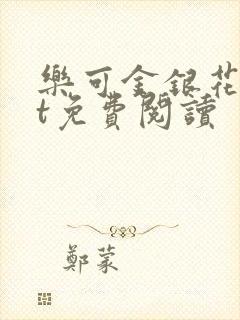 樂可金銀花
t免費閱讀
鄭蒙